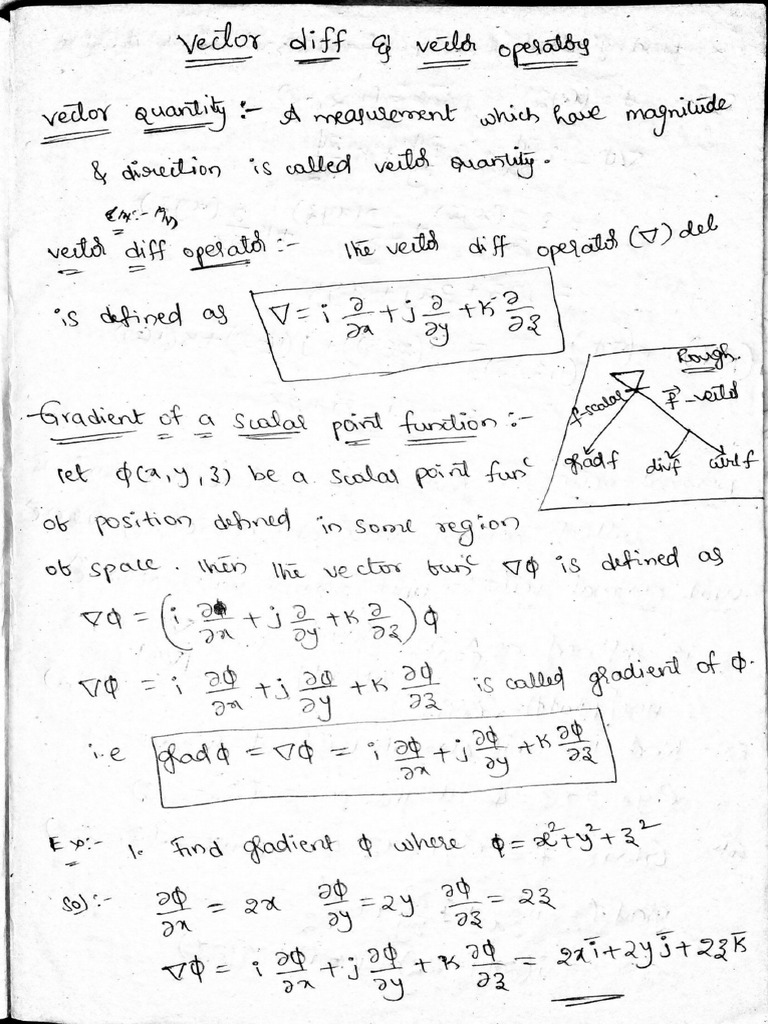 Vector diff & vector operators
Vector quantity :- A measurement which have magnitude
& direction is called vector quantity.
Ex:-
vector diff operator :- The vector diff operator (∇) del
is defined as ∇ = i ∂/∂x + j ∂/∂y + k ∂/∂z
Rough.
f-scalar F⃗-vector
grad f div f curl f
Gradient of a scalar point function :-
let ϕ(x, y, z) be a scalar point funᶜ
of position defined in some region
of space. Then the vector funᶜ ∇ϕ is defined as
∇ϕ = (i ∂/∂x + j ∂/∂y + k ∂/∂z) ϕ
∇ϕ = i ∂ϕ/∂x + j ∂ϕ/∂y + k ∂ϕ/∂z is called gradient of ϕ.
i.e grad ϕ = ∇ϕ = i ∂ϕ/∂x + j ∂ϕ/∂y + k ∂ϕ/∂z
Ex:- 1. Find gradient ϕ where ϕ = x² + y² + z²
Sol:- ∂ϕ/∂x = 2x ∂ϕ/∂y = 2y ∂ϕ/∂z = 2z
∇ϕ = i ∂ϕ/∂x + j ∂ϕ/∂y + k ∂ϕ/∂z = 2x i̅ + 2y j̅ + 2z k̅